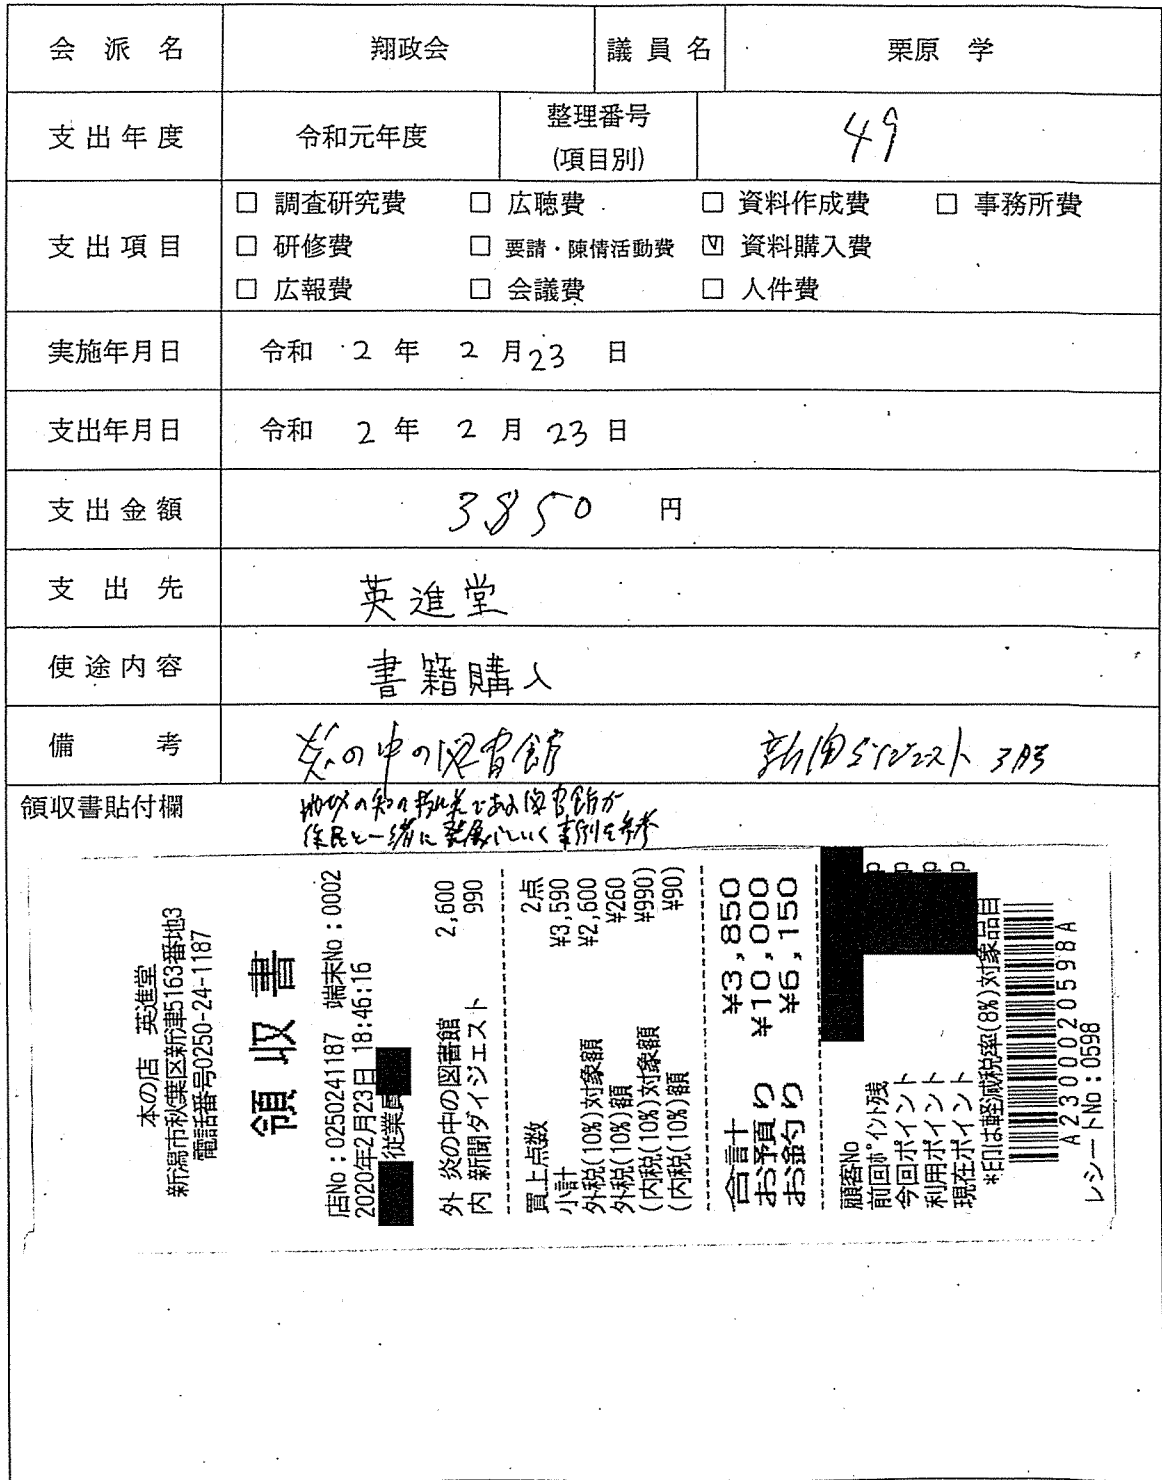 会派名 翔政会 議員名 栗原 学
支出年度 令和元年度 整理番号 (項目別) 49
支出項目
□ 調査研究費 □ 広聴費 □ 資料作成費 □ 事務所費
□ 研修費 □ 要請・陳情活動費 ☑ 資料購入費
□ 広報費 □ 会議費 □ 人件費
実施年月日 令和 2 年 2 月 23 日
支出年月日 令和 2 年 2 月 23 日
支出金額 3850 円
支出先 英進堂
使途内容 書籍購入
備考 炎の中の図書館 新聞ダイジェスト 3月号
領収書貼付欄
地域の知の拠点である図書館が
住民と一緒に発展していく事例を参考
本の店 英進堂
新潟市秋葉区新津5163番地3
電話番号0250-24-1187
領収書
店No:0250241187 端末No:0002
2020年2月23日 18:46:16
従業員
外 炎の中の図書館 2,600
内 新聞ダイジェスト 990
買上点数 2点
小計 ¥3,590
外税(10%)対象額 ¥2,600
外税(10%)額 ¥260
(内税(10%)対象額 ¥990)
(内税(10%)額 ¥90)
合計 ¥3,850
お預り ¥10,000
お釣り ¥6,150
顧客No
前回ポイント残 p
今回ポイント p
利用ポイント p
現在ポイント p
*印は軽減税率(8%)対象品目
A23000020598A
レシートNo:0598